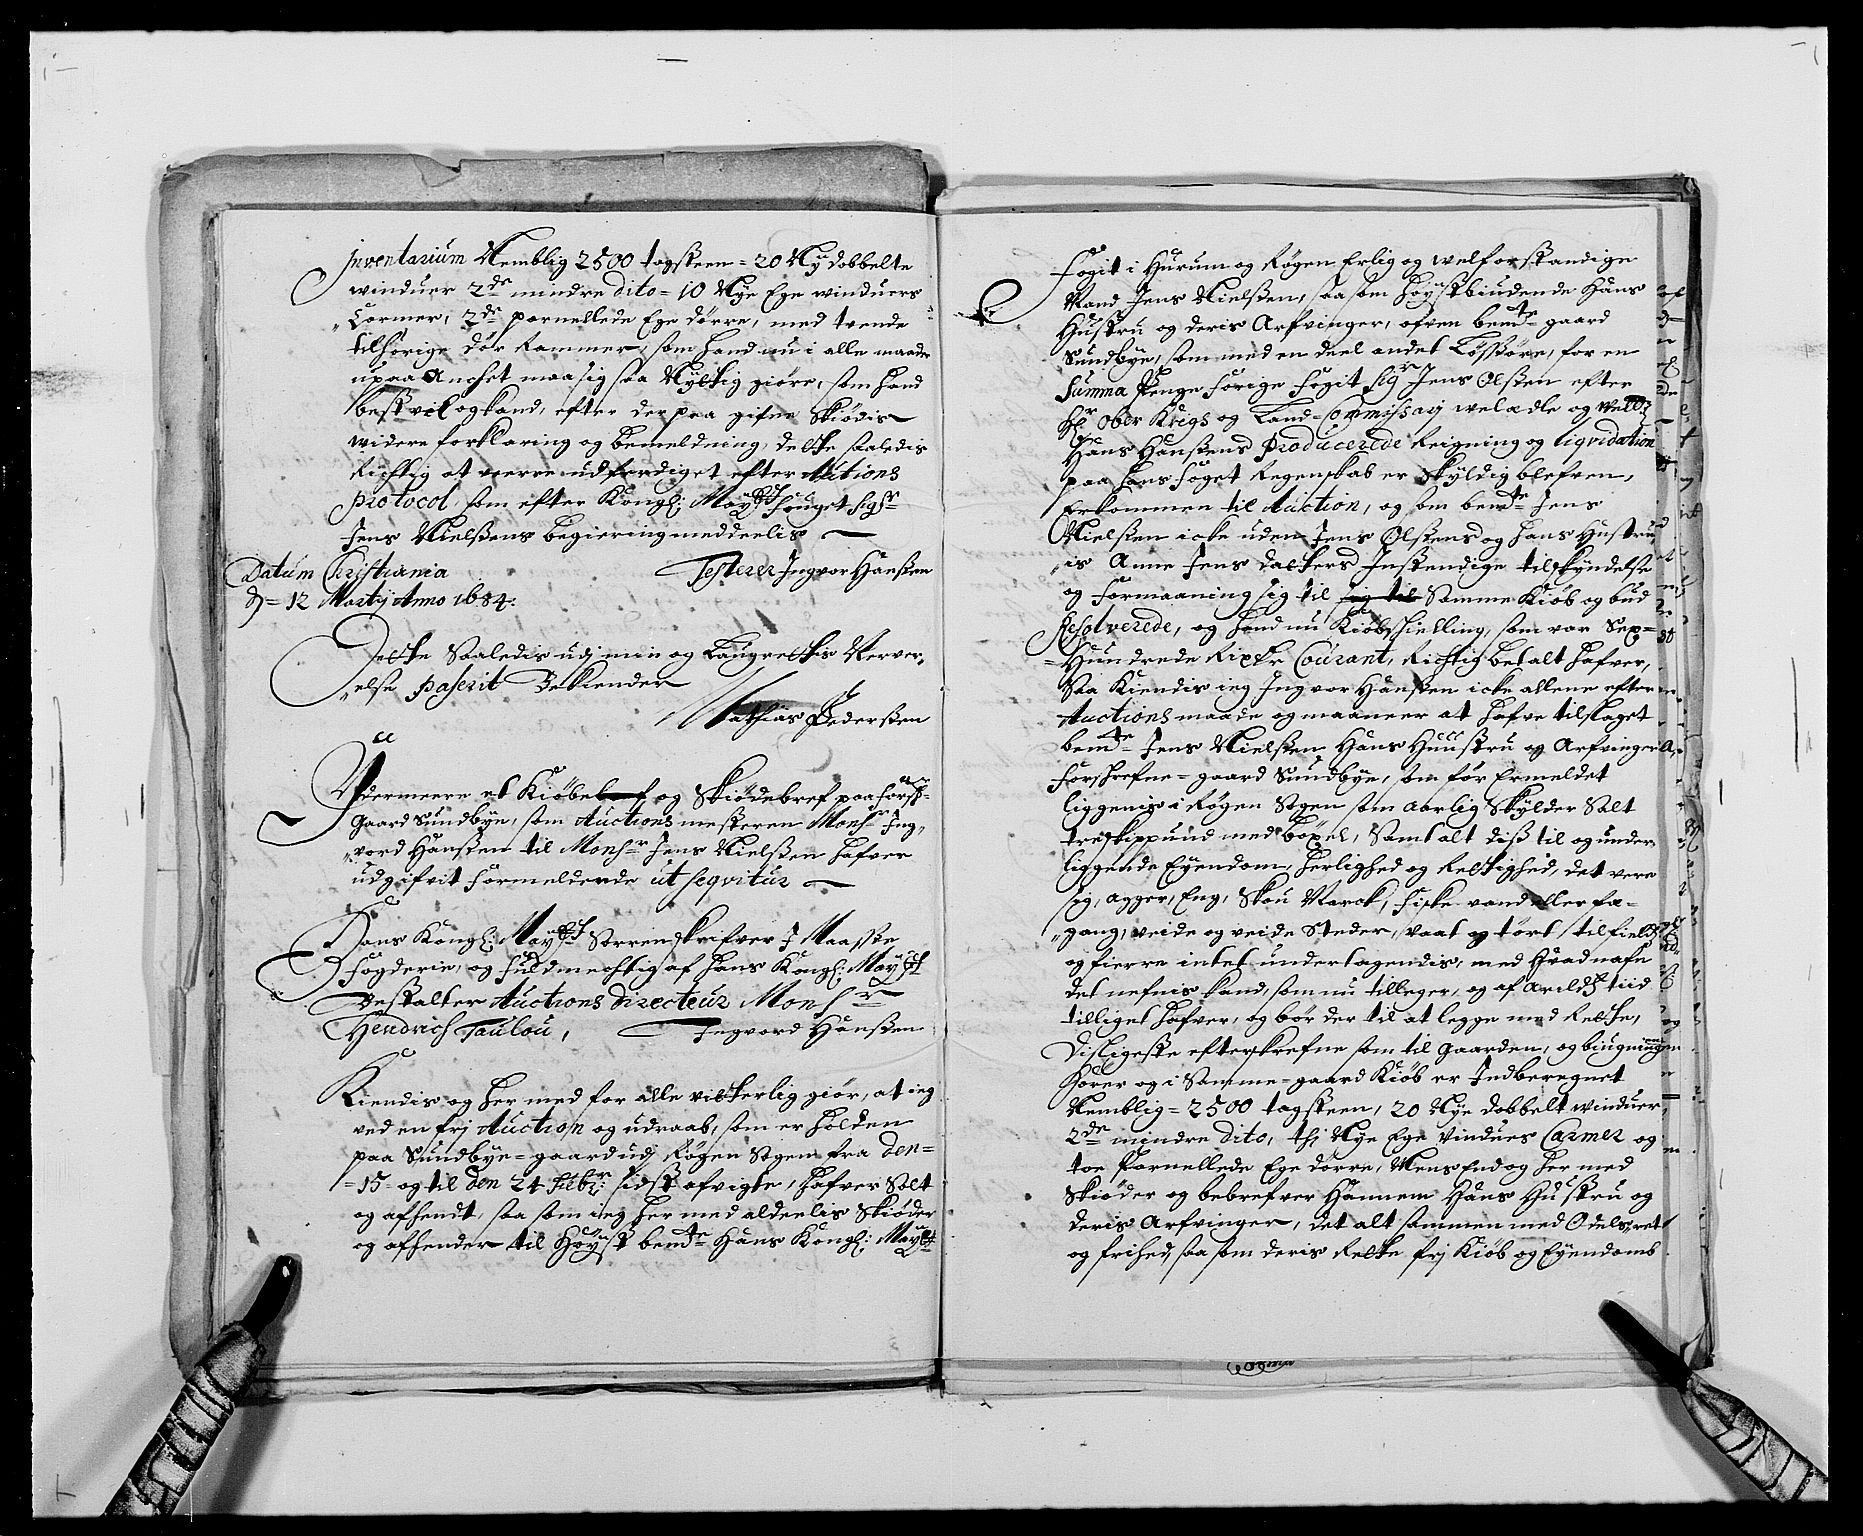 Inventarium Nemblig 2500 tagsteen = 20 Ny dobbelte
winduer 2de mindre dito = 10 Nye Ege winduers
Carmer, 2de parnellede Ege dørre, med tvende
tilhørige dør Rammer, som hand nu i alle maader
upaa Anchet maa sig saa Nyttig giøre, som hand
best vil og kand, efter der paa gifne Skiødis
widere forklaring og bemeldning, dette saaledis
Richtig at verre udferdiget efter Autions
protocol som efter Kongl: Maytts fouget Sigr
Jens Nielssens begiering meddeelis
Datum Christiania
d= 12 Marty Anno 1684.
Testerer Ingvor Hanssen
Dette Saaledis udj min og Laugrettis Nerver,
else passerit Bekiender
Mathias Pederssen
Ydermeere et Kiøbe og Skiødebref paa forsk:
Gaard Sundbye, som Auctions mesteren Monsr Ing,
vord Hanssen til Monsr Jens Nielssen hafver
udgifvit formeldende ut seqvitur
Hans Kongl: Maytts Sorrenskrifver J Maasse
fogderie, og fuldmechtig af Hans Kongl: Maytts
Bestalter Auctions Directeur Monsr
Hendrich Taulou, Ingvord Hanssen
Kiendis og her med for alle vitterlig giør, at ieg
ved en frj Auction og udraab, som er holden
paa Sundbye = gaard udj Røgen Sogen fra den =
= 15 = og til den 24 febr: sidst afvigte, hafver Solt
og afhendt, saa som ieg her med aldeelis Skiøder
og afhender til Høyst bemte Hans Kongl: Maytts
Fogit i Hurum og Røgen Erlig og welforstandige
Mand Jens Nielssen, saa som høystbiudende Hans
Hustru og deris Arfvinger, ofven bemte gaard
Sundbye, som med en deel andet Løssøre, for en
Summa Penge forige fogit Sigr Jens Olssen efter
Hr Ober Krigs og Land-Commissarij weladle og
Hans Hanssens Producerede Reigning og liqvidation
paa hans foget Regenskab er skyldig blefven,
Erkommen til Auction, og som bemte Jens
Nielssen icke uden Jens Olssens og hans Hustru
is Anne Jens datters Instendige tilskyndelse
og formaaning sig til sig til Samme Kiøb og bud
Resolverede, og hand nu Kiøbschielling, som var Sex =
= Hundrede Rixdr Courant, Richtig betalt hafver,
Saa Kiendis ieg Ingvor Hanssen icke allene efter
Auctions maade og maaneer at hafve tilslaget
bemte Jens Nielssen Hans Huustru og Arfvinger
forschrefne = gaard Sundbye, som før Ermeldet
liggenis i Røgen Sogen som aarlig Skylder Salt
tre skippund med bøxel, Samt alt diss til og under
liggende Eyendom, herlighed og Rettighed, det vere
sig, agger, Eng, Skou Marck, fiske vand eller fæ =
gang, veide og veide Steder, vaat og tørt, til fields
og fierre intet undertagendis, med Hvad nafn
det nefnis kand, som nu tilleger, og af Arilds tiid
tilliget hafver, og bør der til at legge med Rette,
Disligeste efterskrefne som til gaarden, og biugningen
hører og i Samme = gaard Kiøb er Indberegnet
Nemblig = 2500 tagsteen, 20 Nye dobbelt winduer,
2de mindre dito, thj Nye Ege Vindues Carmer og
toe Parnellede Ege dørre, Mens End og her med
Skiøder og bebrefver Hannem Hans Hustru og
deris Arfvinger, det alt sammen med Odels ret
og frihed, saa som deris Rette frj Kiøb og Eyendomb